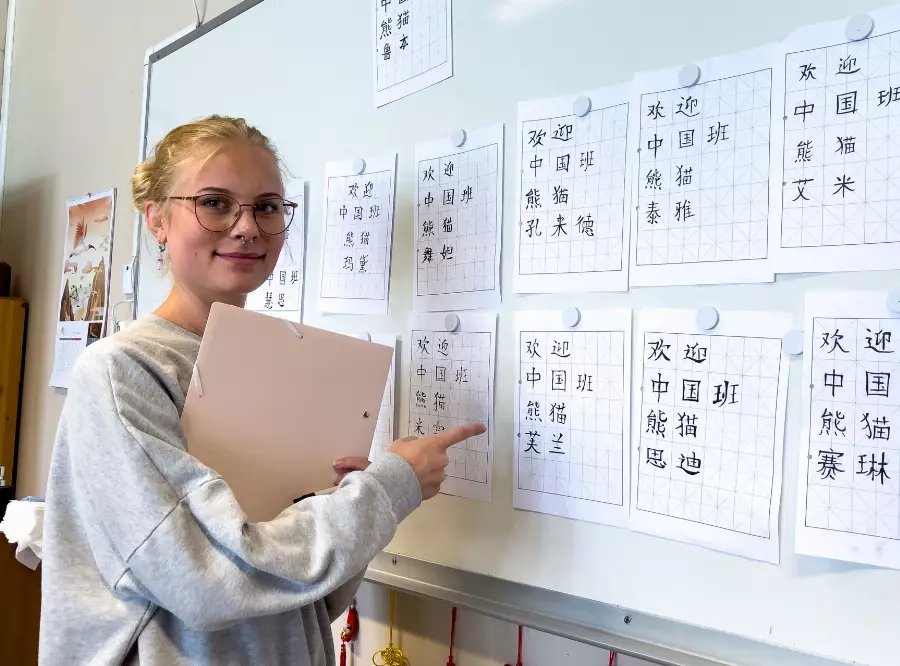 熊猫
鲁本
国班
慧思
欢迎
中国班
熊猫
玛黛
欢迎
中国班
熊猫
舞妲
欢迎
中国班
熊猫
孔来德
欢迎
中国班
熊猫
泰雅
欢迎
中国班
熊猫
艾米
欢迎
中国班
熊猫
欢迎
中国班
熊猫
芙兰
欢迎
中国班
熊猫
思迪
欢迎
中国
熊猫
赛琳